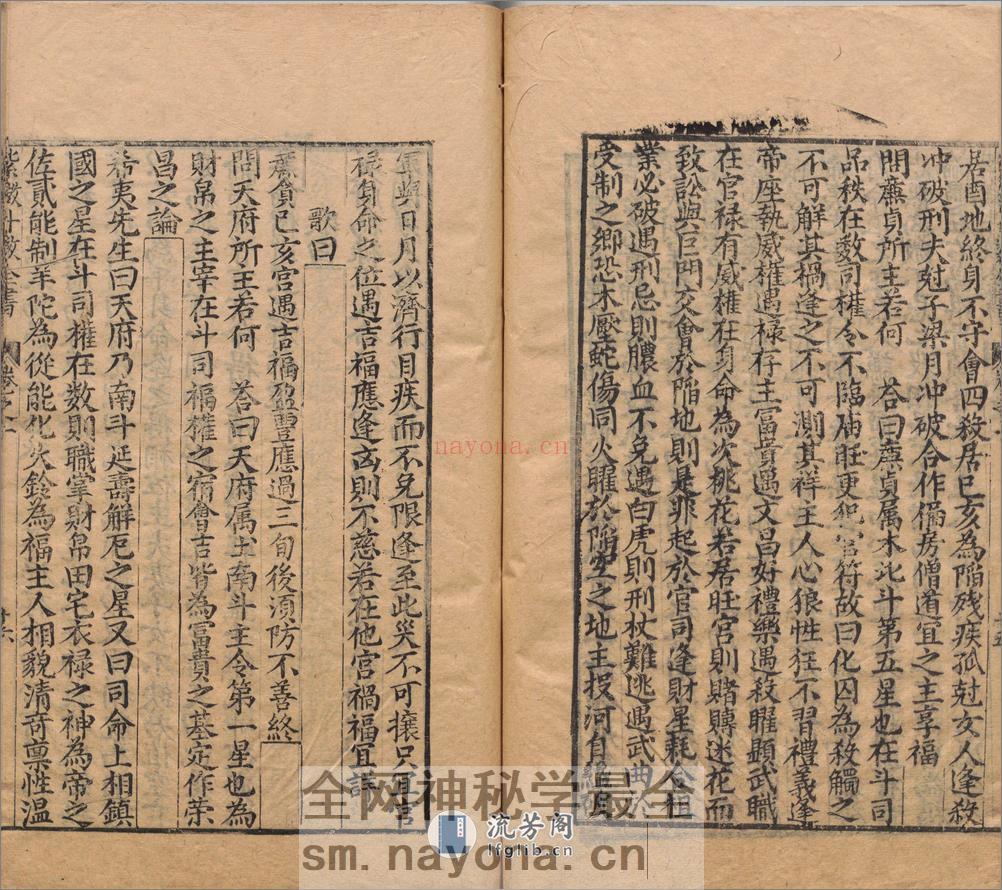 居酉地終身不守會四殺居巳亥為陷殘疾孤尅女人逢殺
冲破刑夫尅子梁月冲破合作偏房僧道宜之主享福
問廉貞所主若何 荅曰廉貞属木北斗第五星也在斗司
品秩在数司權令不臨庙旺更犯官符故曰化囚為殺觸之
不可解其禍逢之不可測其祥主人心狼性狂不習禮義逢
帝座執威權遇禄存主富貴遇文昌好禮樂遇殺曜顕武職
在官禄有威權在身命為次桃花若居旺宮則賭賻迷花而
致訟與巨門交會於陷地則是非起於官司逢財星耗合祖
業必破遇刑忌則膿血不免遇白虎則刑杖難逃遇武曲於
受制之鄉恐木壓蛇傷同火曜於陷空之地主投河自
軍與日月以濟行目疾而不免限逢至此災不可攘只宜官
禄身命之位遇吉福應逢凶則不慈若在他宮禍福宜詳
歌曰
廉貪巳亥宮遇吉福盈豐應過三旬後須防不善終
問天府所主若何 荅曰天府属土南斗主令第一星也為
財帛之主宰在斗司福權之宿會吉皆為冨貴之基定作榮
昌之論
希夷先生曰天府乃南斗延壽解厄之星又曰司命上相鎮
國之星在斗司權在数則職掌財帛田宅衣禄之神為帝之
佐貳能制羊陀為從能化火鈴為福主人相貌清奇禀性温
紫微斗数全書 卷之一 廿六
全网神秘学最全
nayona.cn
sm.nayona.cn
流芳阁
lfglib.cn